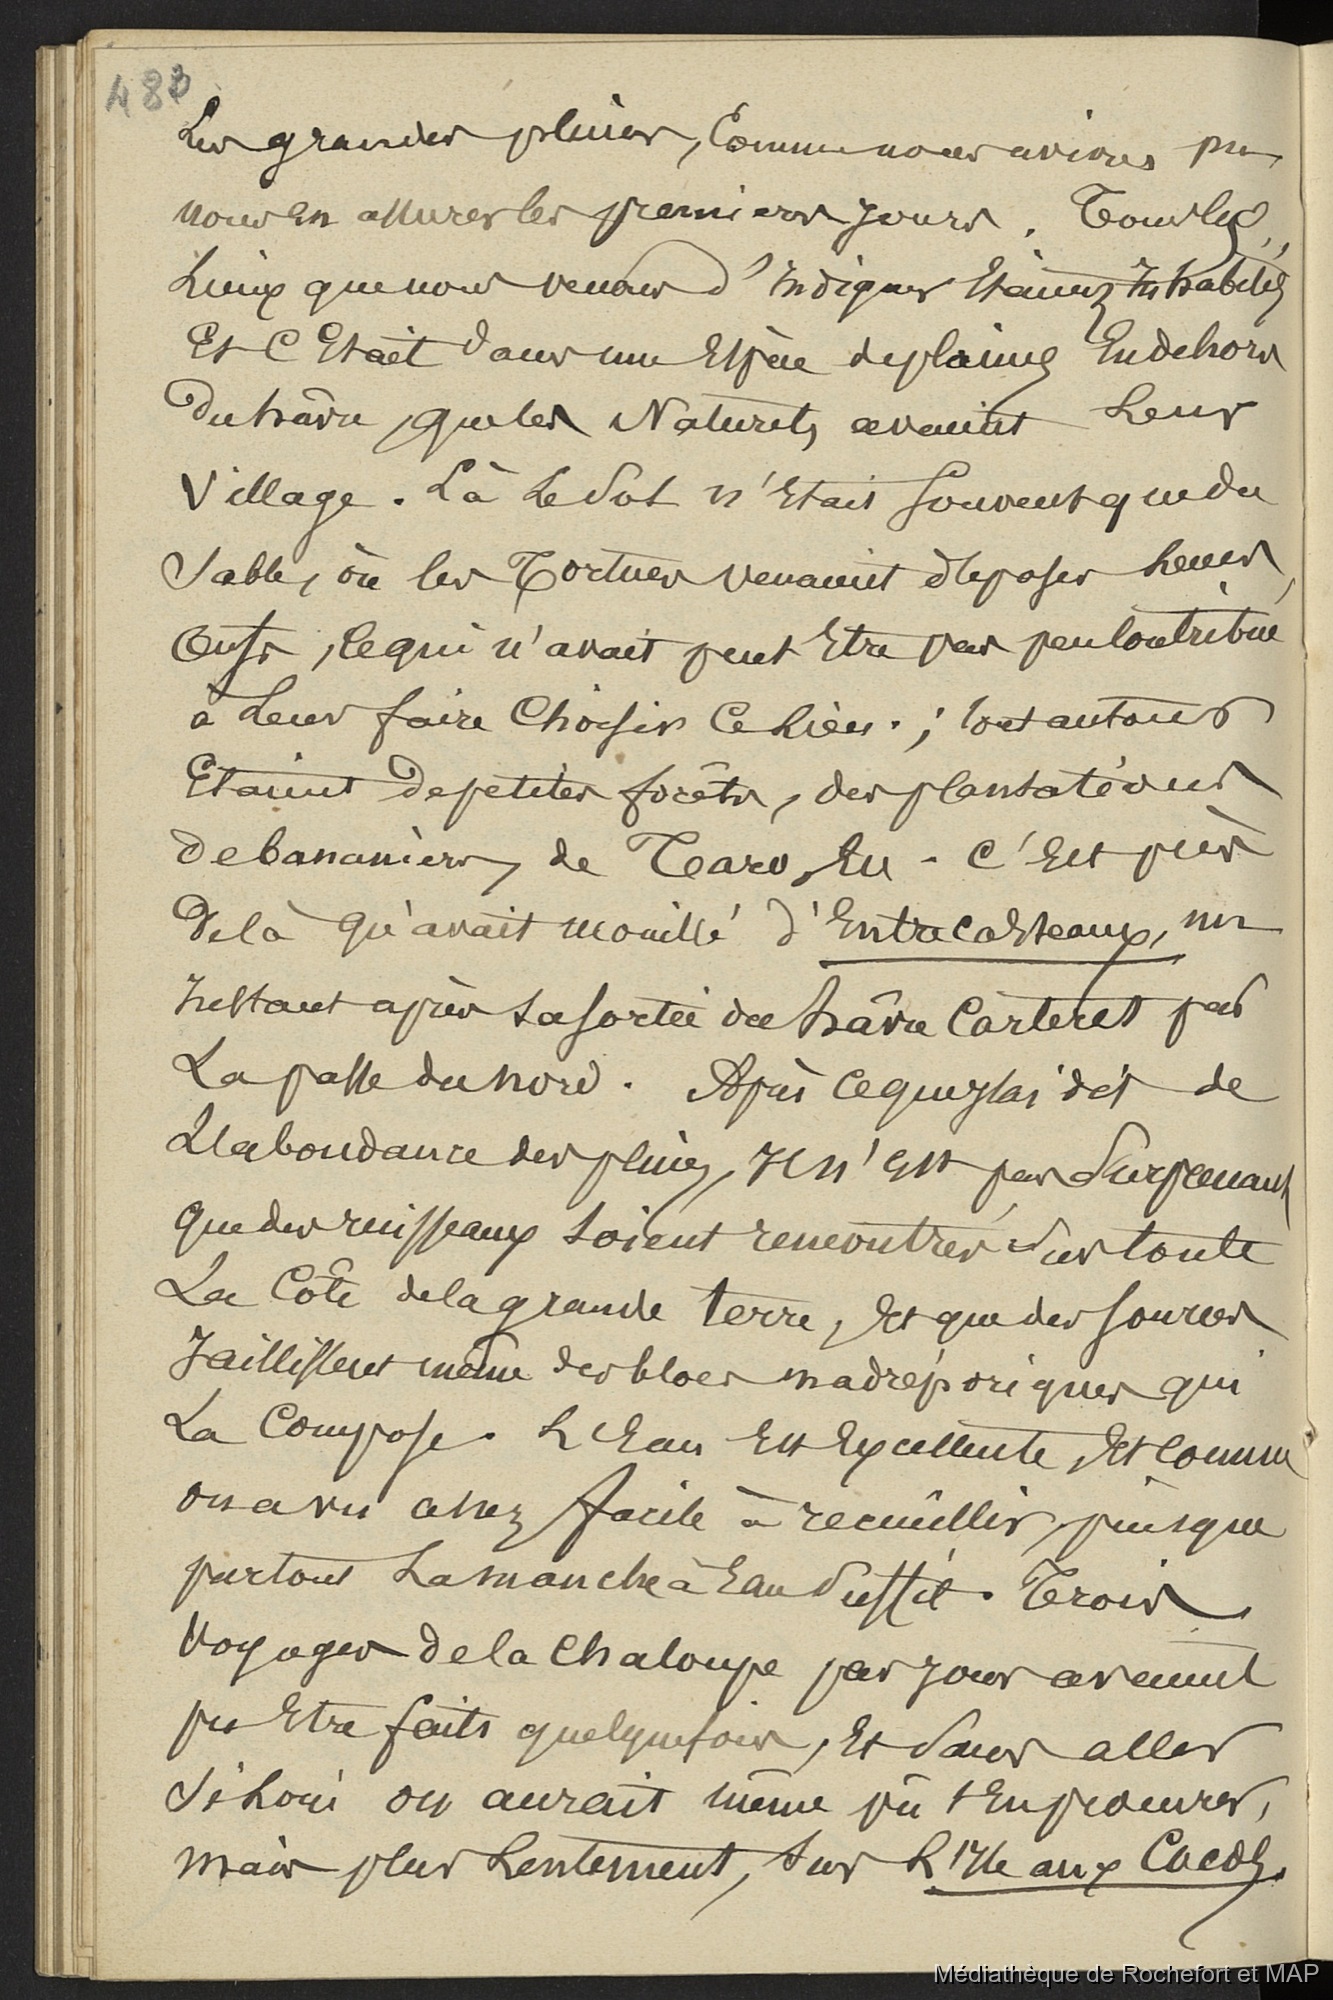 483
Les grandes pluies, Comme nous avions pu
nous en assurer les premiers jours. Tous les
Lieux que nous venons d'Indiquer Etaient Inhabités
Et C'Etait dans une Espèce de plaine, En dehors
Du hâvre, que les Naturels avaient Leur
Village. Là Le Sol n'Etait Souvent que du
Sable, où les Tortues venaient déposer Leurs
Œufs, Ce qui n'avait peut Etre pas peu Contribué
à Leur faire Choisir Ce Lieu.; tout autour
Etaient De petites forêts, des plantations
De bananiers, de Taro, Etc. C'Est près
De là qu'avait mouillé d'Entrecasteaux, un
Instant après sa sortie du hâvre Carteret par
La passe du nord. Après Ce que j'ai dit de
L'abondance des pluies, Il n'Est pas Surprenant
Que des ruisseaux soient rencontrés sur toute
La Côte de la grande terre, Et que des sources
Jaillissent même des blocs madréporiques qui
La Compose. L'Eau Est Excellente, Et comme
on a vu assez facile à recueillir, puisque
partout La manche à Eau Suffit. Trois
Voyages De la Chaloupe par jour avaient
pu Etre faits quelquefois, Et Sans aller
Si Loin on aurait même pû s'En procurer,
mais plus Lentement, sur L'Ile aux Cocos.
Médiathèque de Rochefort et MAP